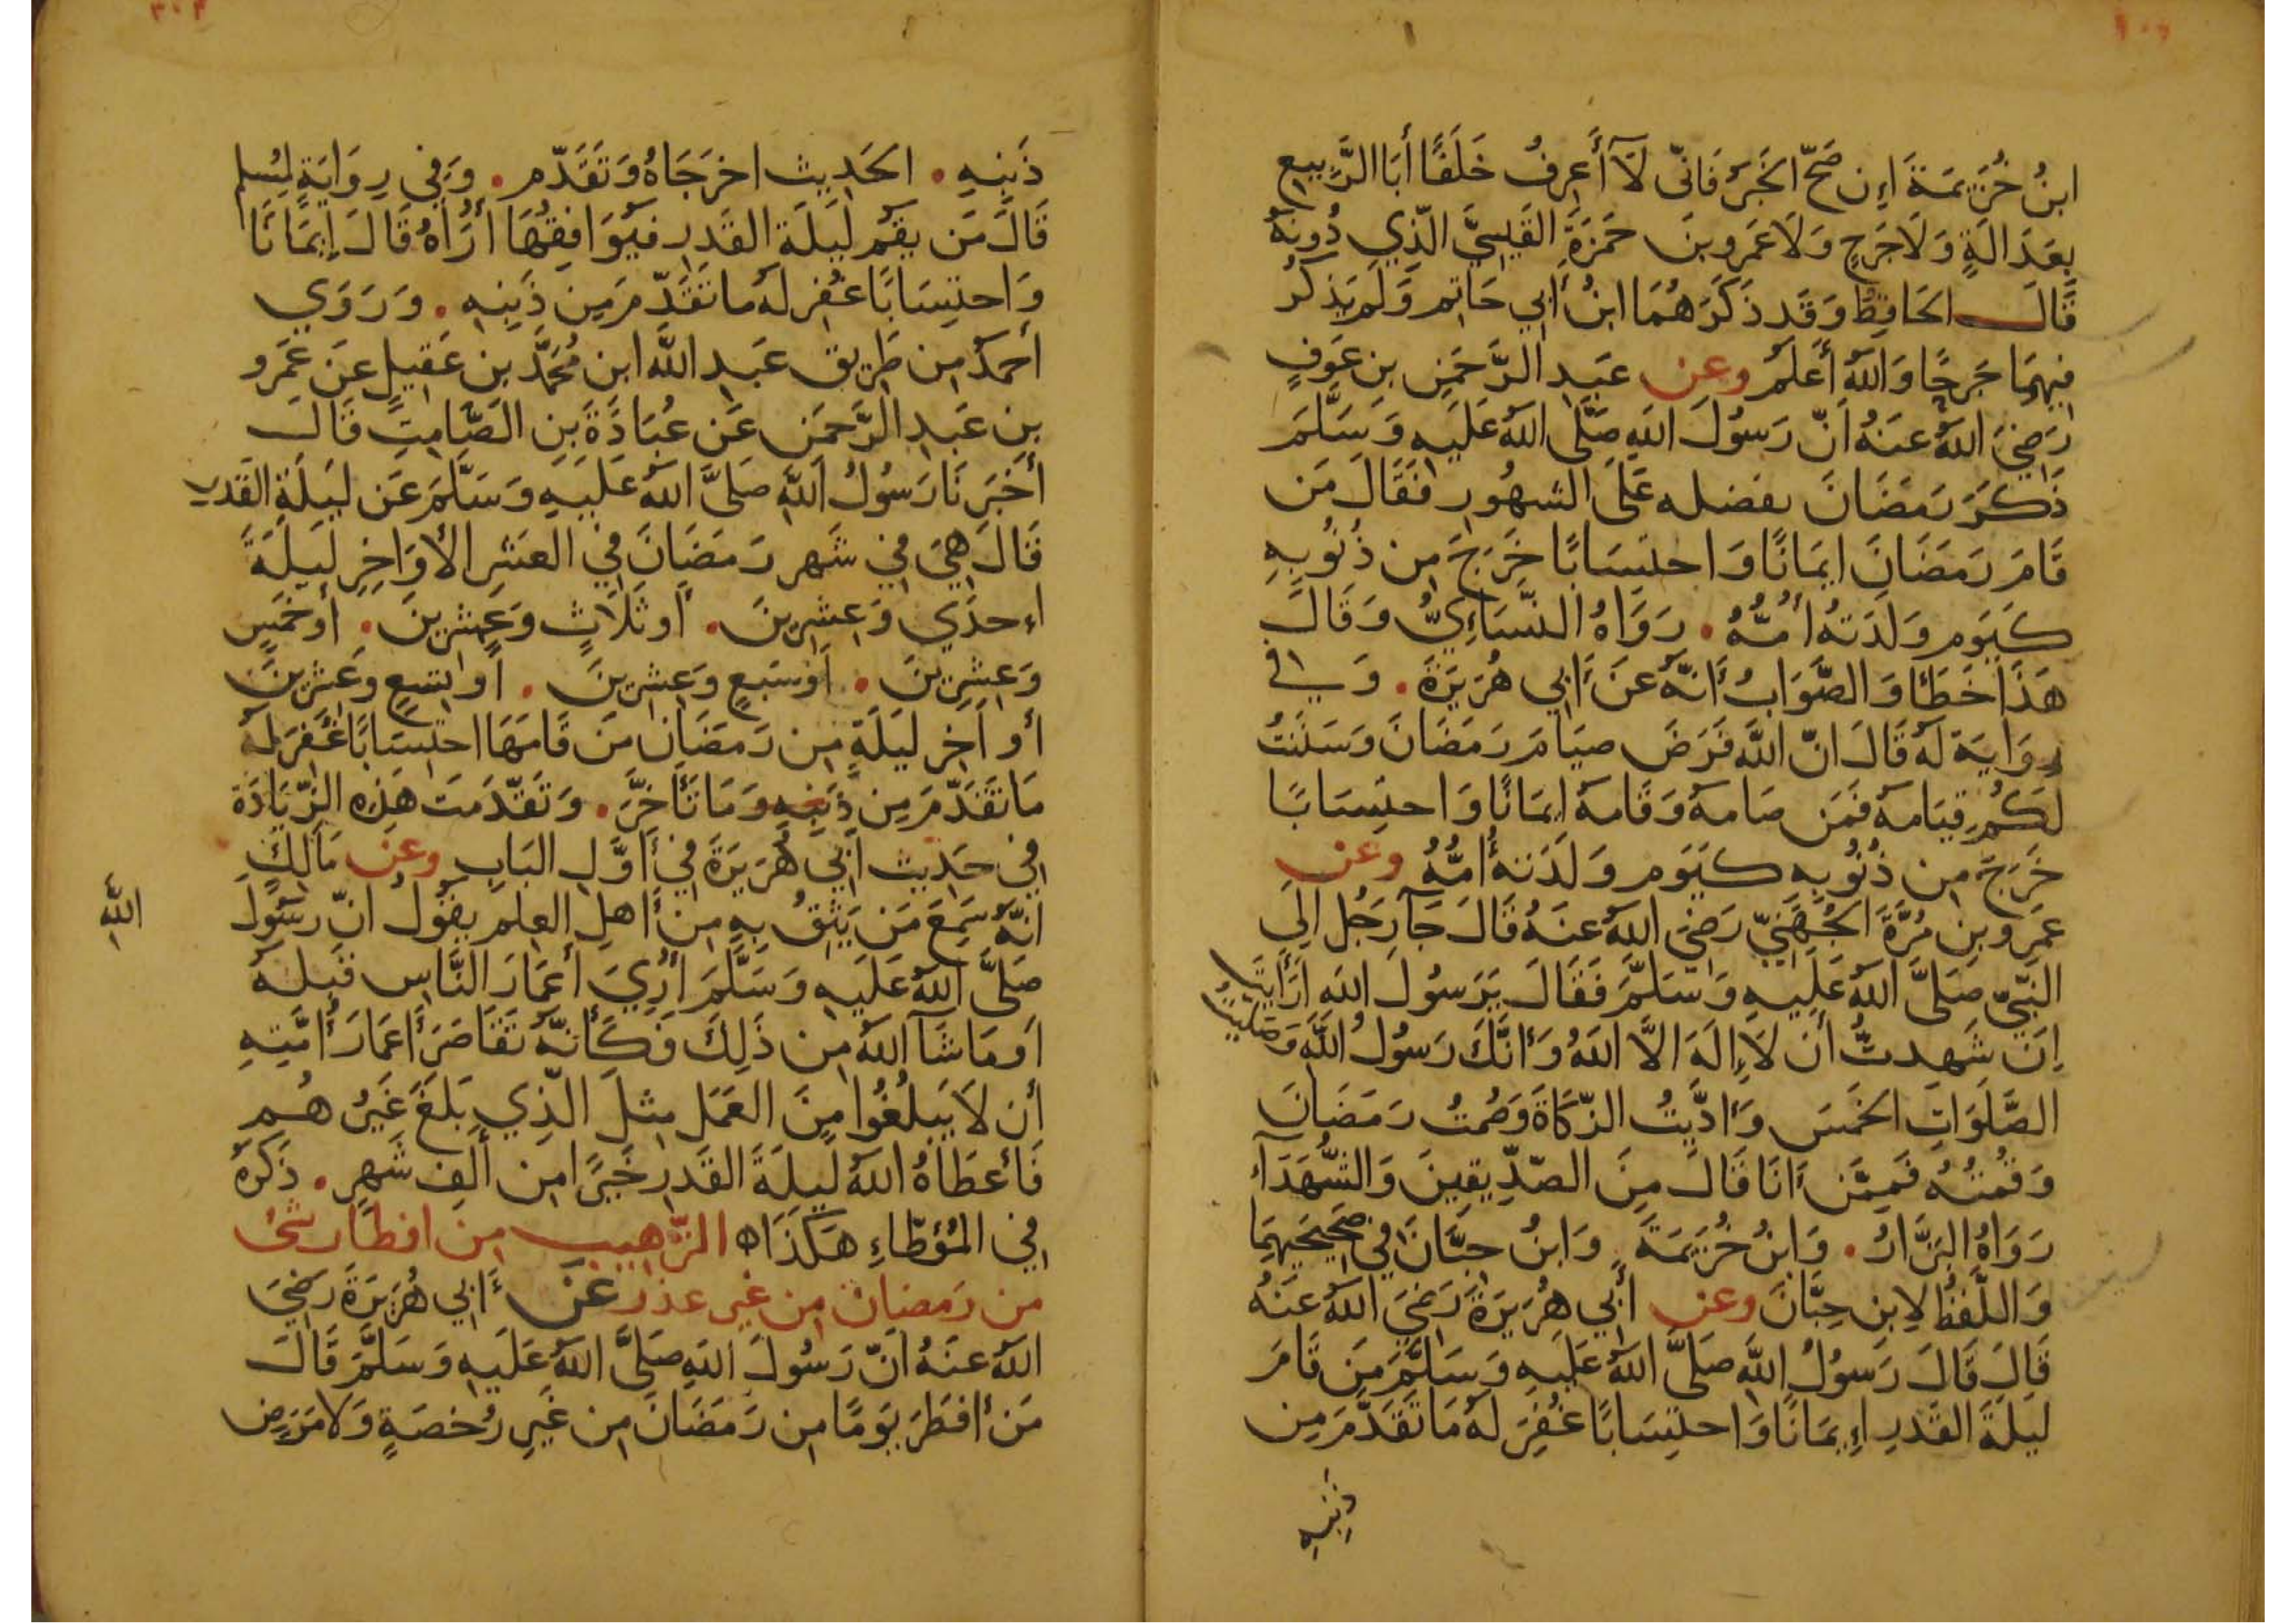 ابنُ خُزَيمَةَ اءِن صَحَّ الخَبَرُ فَانّى لَآ أَعرِفُ خَلَفًا أَبَا الرَّبِيعِ
بِعَدَالَةٍ وَلَا جَرحٍ وَلَا عَمرو بنَ حَمزَةَ القَيسِيَّ الَّذِي دُونَهُ
قَالَ الحَافِظُ وَقَد ذَكَرَهُمَا ابنُ أَبِي حَاتِم وَلَم يَذكُر
فِيهِمَا جَرحًا وَاللهُ أَعلَمُ وعن عَبدِ الرَّحمَنِ بنِ عَوفٍ
رَضِيَ اللهُ عَنهُ اَنّ رَسُولَ اللهِ صَلَّى اللهُ عَلَيهِ وَسَلَّمَ
ذَكَرَ رَمَضَانَ بفضله عَلَى الشهُورِ فَقَالَ مَن
قَامَ رَمَضَانَ ايمَانًا وَاحتِسَابًا خَرَجَ مِن ذُنُوبِهِ
كَيَوم وَلَدَتهُ أُمُّهُ . رَوَاهُ النَّسَاءِيُّ وَقَالَ
هَذَا خَطَأ وَالصَّوَابُ أَنَّهُ عَن أَبِي هُرَيرَةَ . وَفي
رِوَايَة لَهُ قَالَ انّ اللهَ فَرَضَ صِيَامَ رَمَضَانَ وَسَنَنتُ
لَكُم قِيَامَهُ فَمَن صَامَهُ وَقَامَهُ ايمَانًا وَاحتِسَابًا
خَرَجَ مِن ذُنُوبِهِ كَيَوم وَلَدَتهُ أُمُّهُ وعن
عَمرِو بنِ مُرَّةَ الجُهَنِيّ رَضِيَ اللهُ عَنهُ قَالَ جَآءَ رَجُل الَى
النَّبِيّ صَلَّى اللهُ عَلَيهِ وَسَلَّمَ فَقَالَ يَرَسُولَ اللهِ أَرَأَيتَ
اِن شَهِدتُّ أَن لَا إِلَهَ الَّا اللهُ وَأَنَّكَ رَسُولُ اللهِ وَصَلَّيتُ
الصَّلَوَاتِ الخَمسَ وَأَدَّيتُ الزَّكَاةَ وَصُمتُ رَمَضَانَ
وَقُمتُهُ فَمِمَّن أَنَا قَالَ مِنَ الصّدِّيقِينَ وَالشُّهَدَآءِ
رَوَاهُ البَزَّارُ . وَابنُ خُزَيمَةَ . وَابنُ حِبَّانَ فِي صَحِيحَيهِمَا
وَاللَّفظُ لِابنِ حِبَّانَ وعن أَبِي هُرَيرَةَ رَضِيَ اللهُ عَنهُ
قَالَ قَالَ رَسُولُ اللهِ صَلَّى اللهُ عَلَيهِ وَسَلَّمَ مَن قَامَ
لَيلَةَ القَدرِ اءِيمَانًا وَاحتِسَابًا غُفِرَ لَهُ مَا تَقَدَّمَ مِن
ذنبِهِ
ذَنبِهِ . الحَدِيث اخرَجَاهُ وَتَقَدّم . وَفِي رِوَايَةٍ لِمُسلِم
قَالَ مَن يَقُم لَيلَةَ القَدرِ فَيُوَافِقُهَا أُرَاهُ قَالَ إِيمَانًا
وَاحتِسَابًا غُفِر لَهُ مَا تَقَدّمَ مِن ذَنبِهِ . وَرَوَي
أَحمَدُ مِن طَرِيق عَبدِ اللهِ ابن مُحَمَّد بن عَقِيلٍ عَن عَمرو
بنِ عَبدِ الرَّحمَن عَن عُبَادَةَ بنِ الصَّامِتِ قَالَ
أَخبَرَنَا رَسُولُ اللهِ صَلَّى اللهُ عَلَيهِ وَسَلَّمَ عَن لَيلَةِ القَدرِ
قَالَ هِيَ فِي شَهرِ رَمَضَانَ فِي العَشرِ الأَوَاخِرِ لَيلَةَ
اءِحدَي وَعِشرِينَ . أَو ثَلَاثٍ وَعِشرِينَ . أَو خَمسٍ
وَعِشرِينَ . أَو سَبعٍ وَعِشرِينَ . أَو تِسعٍ وَعِشرِينَ
أَو آخِرِ لَيلَةٍ مِن رَمَضَانَ مَن قَامَهَا احتِسَابًا غُفِرَ لَهُ
مَا تَقَدَّمَ مِن ذَنبِهِ وَمَا تَأَخَّرَ . وَتَقَدَّمَت هَذِهِ الزِّيَادَةُ
فِي حَدِيثِ أَبِي هُرَيرَةَ فِي أَوَّلِ البَابِ وعن مَالِكٍ
انَّهُ سَمِعَ مَن يَثِقُ بِهِ مِن أَهلِ العِلم يقُولُ انّ رسُولَ
الله
صَلَّى اللهُ عَلَيهِ وَسَلَّمَ أُرِيَ أَعمَارَ النَّاسِ قَبلَهُ
اَو مَا شَآ اللهُ مِن ذَلِكَ فَكَأَنَّهُ تَقَاصَرَ أَعمَارَ أُمَّتِهِ
أَن لَا يَبلُغُوا مِنَ العَمَل مِثلَ الَّذِي بَلَغَ غَيرُهُم
فَأَعطَاهُ اللهُ لَيلَةَ القَدرِ خَيرًا مِن أَلفِ شَهرٍ . ذَكَرَهُ
فِي المُوَطّاءِ هَكَذَا ه التّرهيب من افطار شئ
من رَمضَان من غير عذر عَن أَبِي هُرَيرَةَ رَضِيَ
اللهُ عَنهُ انّ رَسُولَ اللهِ صَلَّى اللهُ عَلَيهِ وَسَلَّمَ قَالَ
مَن أَفطَرَ يَومًا مِن رَمَضَانَ مِن غَيرِ رُخصَةٍ وَلَا مَرَضٍ